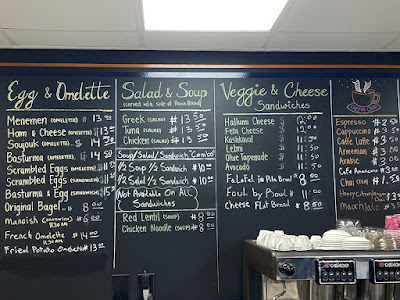 Egg & Omelette
Menemen (OMELETTE) $13.50
Ham & Cheese (OMELETTE) $13
Soujouk (OMELETTE) $14.50
Basturma (OMELETTE) $14.50
Scrambled Eggs (OMELETTE)
Scrambled Eggs (SANDWICH)
Basturma & Egg (SANDWICH) $15
Original Bagel $8.00
Manaish
11:30 AM
French Omelette $14.00
11:30 AM
Fried Potato Omelette $13.50
Salad & Soup
(served w/a side of Pita Bread)
Greek (SALAD) $13.50
Tuna (SALAD) $13.50
Chicken (SALAD) $13.50
Soup/Salad/Sandwich Combo
1/2 Soup 1/2 Sandwich $10.00
1/2 Salad 1/2 Sandwich $10.00
Not Available On ALL
Sandwiches
Red Lentil (SOUP) $8.00
Chicken Noodle (SOUP) $8.00
Veggie & Cheese
Sandwiches
Hallumi Cheese $12.00
Feta Cheese
Kashkaval
Lebni
Olive Tapenade
Avocado
Falafil in Pita Bread $8.00
Foul by Bowl
Cheese Flat Bread
Espresso
Cappuccino
Caffe Latte
Armenian
Arabic
Cafe Americano
Chai
Macchiato